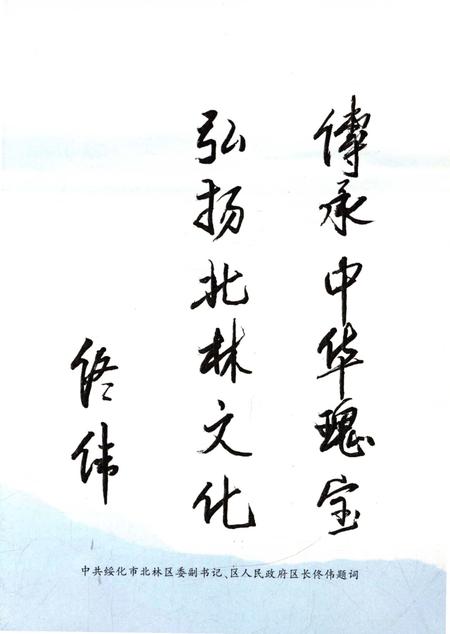 傳承中华瑰宝
弘扬北林文化
佟伟
中共绥化市北林区委副书记、区人民政府区长佟伟题词